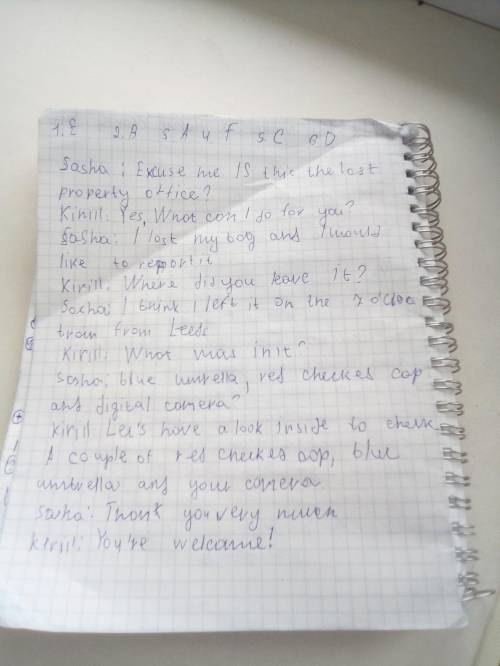 1. E 2. B 3 A 4 F 5 C 6 D
Sasha: Excuse me Is this the lost
property office?
Kirill: Yes, What can I do for you?
Sasha: I lost my bag and I would
like to report it
Kirill: Where did you leave it?
Sasha: I think I left it on the 7 o'cloc
train from Leeds
Kirill: What was in it?
Sasha: blue umbrella, red checked cap
and digital camera?
Kirill: Let's have a look inside to check
A couple of red checked cap, blue
umbrella and your camera
Sasha: Thank you very much
Kirill: You're welcome!